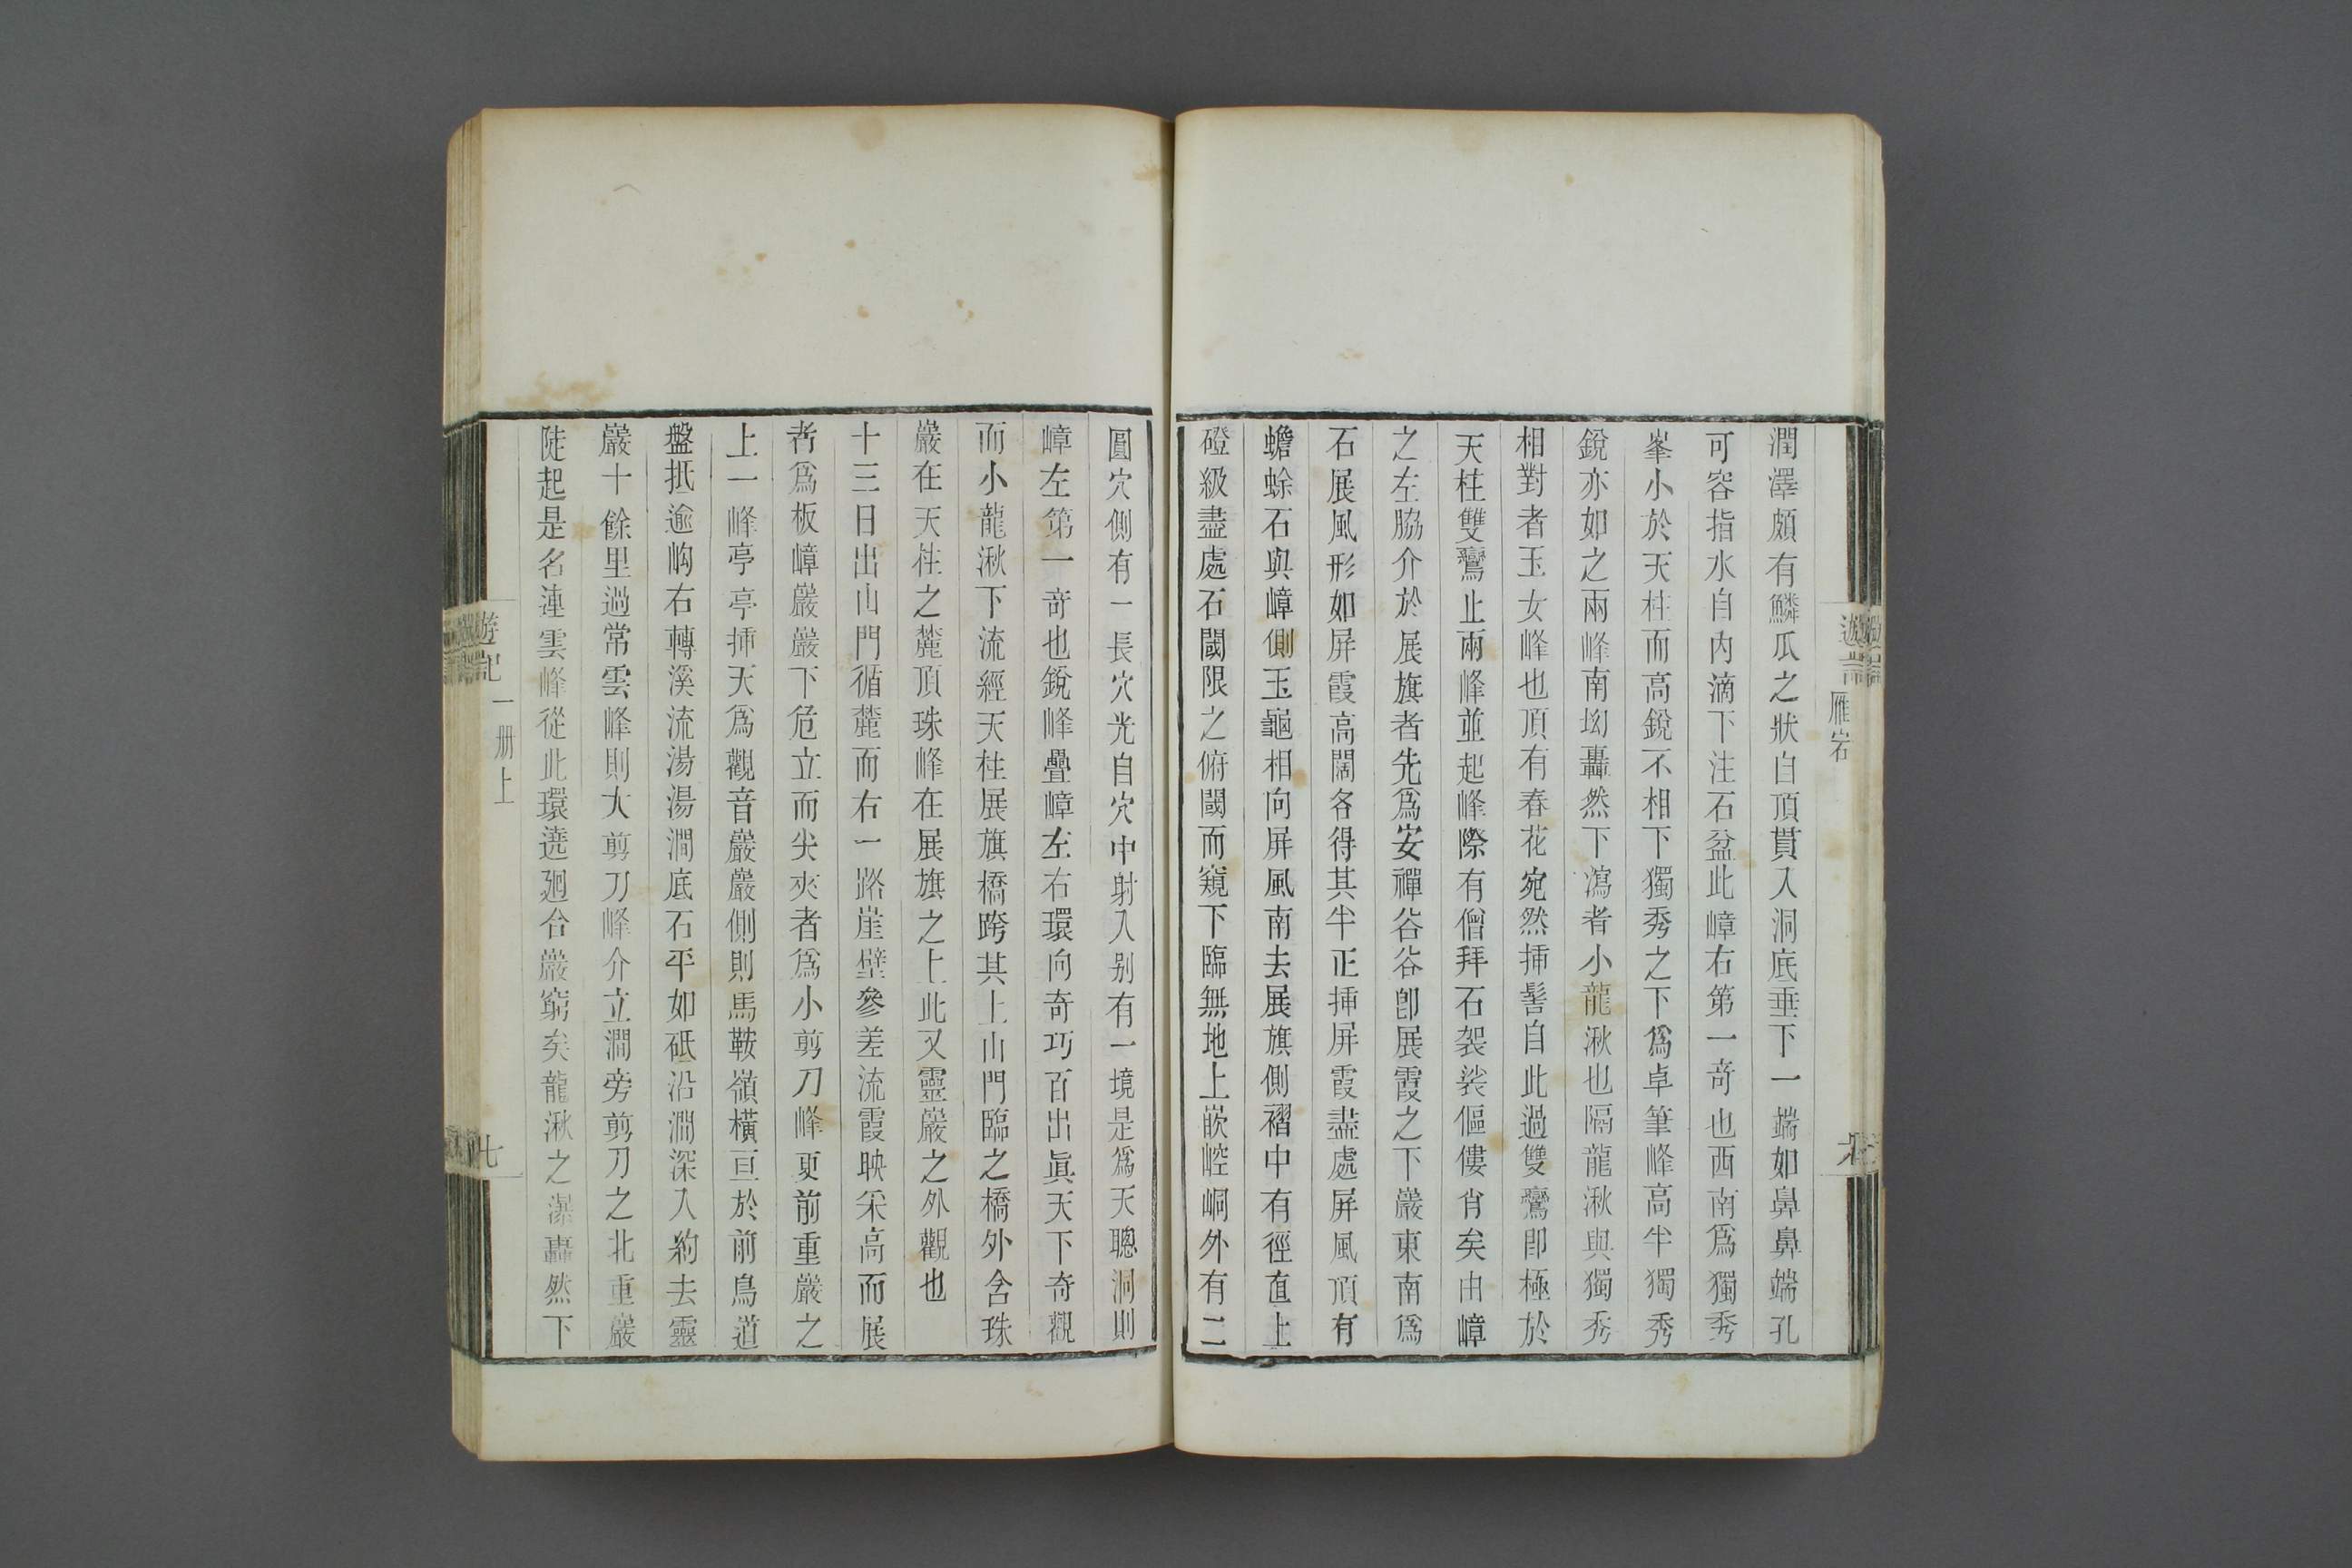 遊記
雁宕
潤澤頗有鱗爪之狀自頂貫入洞底垂下一端如鼻鼻端孔
可容指水自內滴下注石盆此嶂右第一奇也西南為獨秀
峯小於天柱而高銳不相下獨秀之下為卓筆峰高半獨秀
銳亦如之兩峰南坳轟然下瀉者小龍湫也隔龍湫與獨秀
相對者玉女峰也頂有春花宛然揷髻自此過雙鸞即極於
天柱雙鸞止兩峰並起峰際有僧拜石袈裟傴僂肖矣由嶂
之左脇介於展旗者先為安禪谷谷卽展霞之下巖東南為
石展風形如屏霞高闊各得其半正揷屏霞盡處屏風頂有
蟾蜍石與嶂側玉龜相向屏風南去展旗側褶中有徑直上
磴級盡處石閾限之俯閾而窺下臨無地上嵌崆峒外有二
圓穴側有一長穴光自穴中射入别有一境是為天聰洞則
嶂左第一奇也銳峰疊嶂左右環向奇巧百出眞天下奇觀
而小龍湫下流經天柱展旗橋跨其上山門臨之橋外含珠
巖在天柱之麓頂珠峰在展旗之上此又靈巖之外觀也
十三日出山門循麓而右一路崖壁參差流霞映采高而展
者為板嶂巖巖下危立而尖夾者為小剪刀峰更前重巖之
上一峰亭亭揷天為觀音巖巖側則馬鞍嶺橫亘於前鳥道
盤扺逾岣右轉溪流湯湯澗底石平如砥沿澗深入約去靈
巖十餘里過常雲峰則大剪刀峰介立澗旁剪刀之北重巖
陡起是名連雲峰從此環遶廻合巖窮矣龍湫之瀑轟然下
遊記
一册上
七